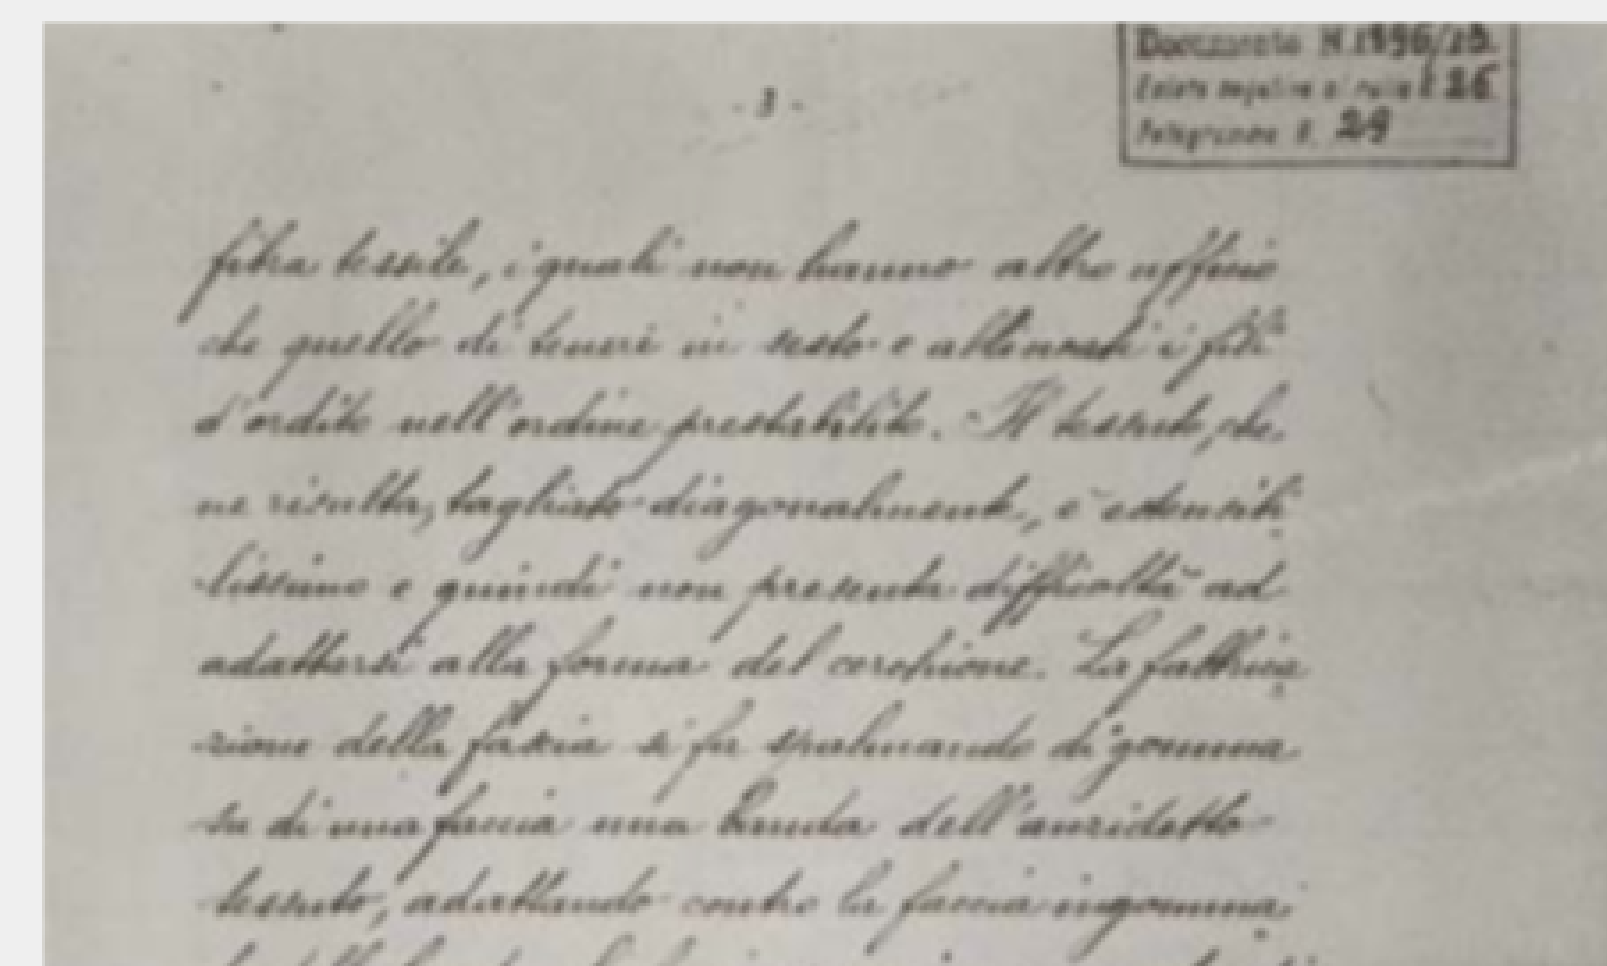 Documento N. 1896/13
26
Fotogramma N. 29
- 3 -
fibra tessile, i quali non hanno altro ufficio
che quello di tenere in sesto e allineati i fili
d'ordito nell'ordine prestabilito. Il tessuto, che
ne risulta, tagliato diagonalmente, è estensibi
lissimo e quindi non presenta difficoltà ad
adattarsi alla forma del cerchione. La fabbrica
zione della fascia si fa spalmando di gomma
su di una faccia una benda dell'anzidetto
tessuto, adattando contro la faccia ingomma